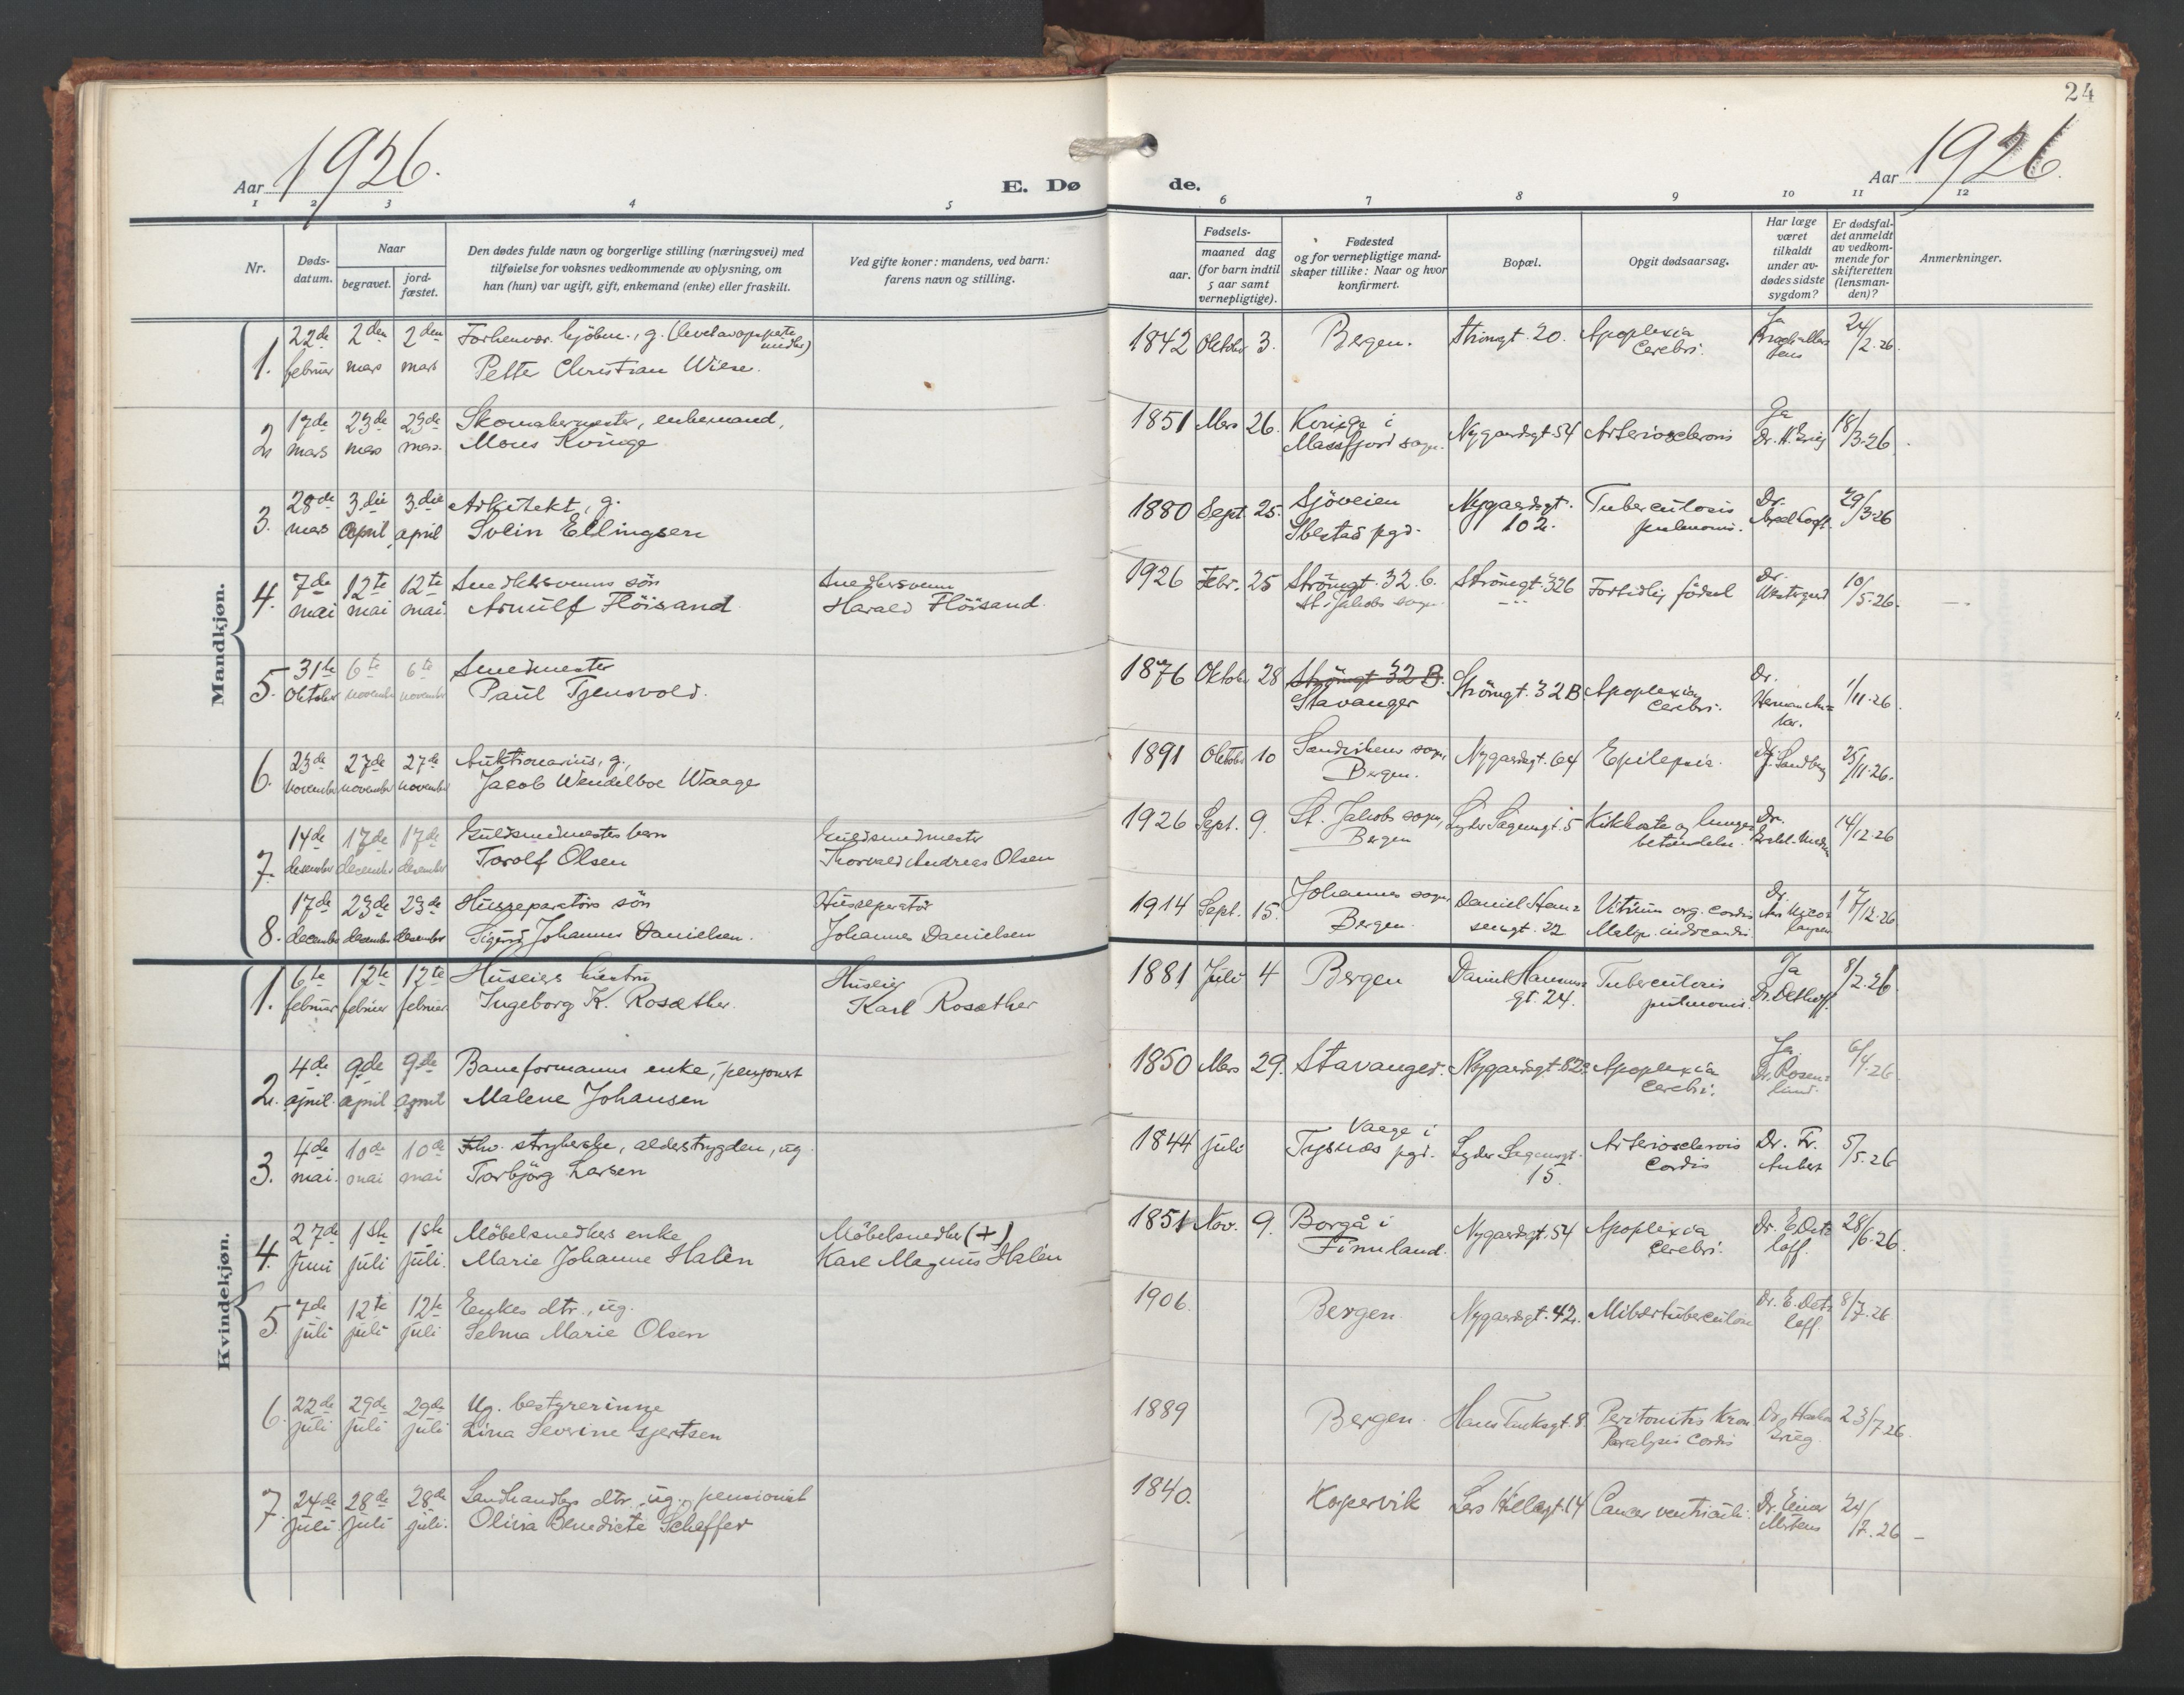 24
Aar 1926.
E. Døde.
Aar 1926.
1 2 3 4 5 6 7 8 9 10 11 12
Nr.
Døds-
datum.
Naar
begravet.
jord-
fæstet.
Den dødes fulde navn og borgerlige stilling (næringsvei) med
tilføielse for voksnes vedkommende av oplysning, om
han (hun) var ugift, gift, enkemand (enke) eller fraskilt.
Ved gifte koner: mandens, ved barn:
farens navn og stilling.
Fødsels-
aar.
maaned dag
(for barn indtil
5 aar samt
vernepligtige).
Fødested
og for vernepligtige mand-
skaper tillike: Naar og hvor
konfirmert.
Bopæl.
Opgit dødsaarsag.
Har læge
været
tilkaldt
under av-
dødes sidste
sygdom?
Er dødsfal-
det anmeldt
av vedkom-
mende for
skifteretten
(lensman-
den)?
Anmerkninger.
Mandkjøn.
1. 22de 2den 2den Forhenvær. kjøbm., g. 1842 Oktober 3. Bergen. Strømgt. 20. Apoplexia Ja 24/2.26.
februar mars mars Petter Christian Wiese. Cerebri.
2. 17de 23de 23de Skomakermester, enkemand, 1851 Mars 26. Kvinge i Nygaardsgt. 54 Arteriosclerosis Ja 18/3-26.
mars mars mars. Mons Kvinge Massfjord sogn.
3. 28de 3die 3die Arkitekt, g. 1880 Sept. 25. Sjöveien Nygaardsgt. Tuberculosis Dr. 29/3-26
mars april april Svein Ellingsen Ibestad pgd. 102. pulmonis.
4. 7de 12te 12te Snedkersvenns sön Snedkersvenn 1926 Febr. 25 Strömgt. 32.b. Strömgt. 32b Fortidlig födsel Dr. 10/5-26.
mai mai mai Arnulf Flöisand Harald Flöisand. St. Jakobs sogn.
5. 31te 6te 6te Smedmester 1876 Oktober 28 Strömgt 32 B. Strömgt. 32B. Apoplexia Dr. 1/11-26.
Oktober november november Paul Tjensvold. Stavanger Cerebri.
6. 23de 27de 27de Auktionarius, g., 1891 Oktober 10 Sandvikens sogn, Nygaardsgt. 64 Epilepsia. Dr. J. Sandberg 25/11-26.
november november november Jacob Wendelboe Waage Bergen.
7. 14de 17de 17de Guldsmedmesters barn Guldsmedmester 1926 Sept. 9. St. Jakobs sogn, Lyder Sagensgt. 5 Kikhoste og lunge- Dr. 14/12-26
desember december desember Torolf Olsen Thorvald Andreas Olsen Bergen betændelse.
8. 17de 23de 23de Husreparatörs sön Husreparatör 1914 Sept. 15. Johannes sogn Daniel Han- Vitium org. cordis Dr. 17/12-26
december desember desember Sigurd Johannes Danielsen. Johannes Danielsen Bergen. sensgt. 22
Kvindekjøn.
1. 6te 12te 12te Huseiers hustru Huseier 1881 Juli 4 Bergen Daniel Hansens Tuberculosis Ja 8/2.26.
februar februar februar. Ingeborg K. Rosæther. Karl Rosæther gt. 24. pulmonis.
2. 4de 9de 9de Baneformanns enke, pensjonert 1850 Mars 29. Stavanger. Apoplexia Ja 6/4-26.
april. april april Malene Johansen Cerebri. Dr. Rosen-
lund.
3. 4de 10de 10de Fhv. strykerske, alderstrygden, ug. 1844 juli Vaage i Lyder Sagensgt. Arteriosclerosis Dr. Fr. 5/5.26
mai. mai mai Torbjörg Larsen Tysnæs pgd. 15. Cordis Aubert
4. 27de 1ste 1ste Möbelsnedkers enke Möbelsnedker (+) 1851 Nov. 9. Borgå i Nygaardsgt. 54 Apoplexia Dr. E. Det- 28/6-26.
Juni juli juli. Marie Johanne Halén Karl Magnus Halén Finnland. Cerebri. loff.
5. 7de 12te 12te Enkes dtr., ug. 1906. Bergen Nygaardsgt. 42. Miliærtuberculose Dr. E. Det- 8/7.26
juli juli juli Selma Marie Olsen loff.
6. 22de 29de 29de Ug. bestyrerinne 1889 Bergen. Hans Tanksgt. 8. Peritonitis Kron. 23/7 26.
juli juli juli Lina Severine Gjertsen Paralysis Cordis Grieg.
7. 24de 28de 28de Landhandlers dtr. ug. pensionist 1840. Kopervik Lars Hillesgt. 14 Cancer ventriculi. Dr. Einar 24/7.26
juli juli juli. Olivia Benedicte Scheffer Mertens